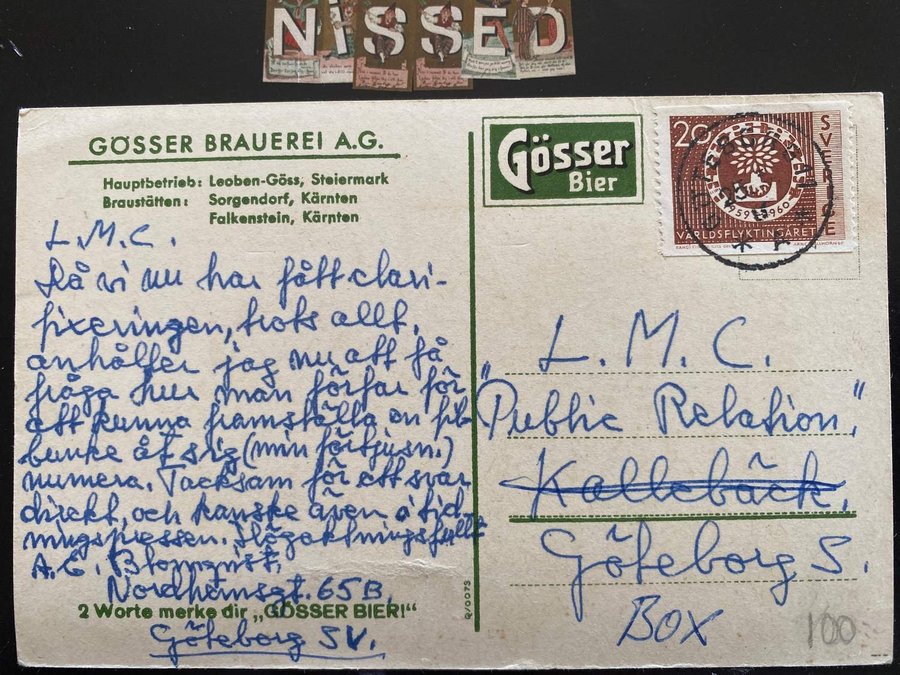 NISSED
GÖSSER BRAUEREI A.G.
Hauptbetrieb: Leoben-Göss, Steiermark
Braustätten: Sorgendorf, Kärnten
Falkenstein, Kärnten
L.M.C.
Då vi nu har fått clari-
fixeringen, trots allt,
anhåller jag nu att få
fråga hur man förfar för
att kunna framställa en fil
bunke åt sig (min förtjusn.)
numera. Tacksam för ett svar
direkt, och kanske även i tid-
ningspressen. Högaktningsfullt
A.E. Blomqvist.
Nordhemsgt. 65B.
2 Worte merke dir „GÖSSER BIER!"
Göteborg SV.
Q/0073
Gösser
Bier
20
SVERIGE
1959 1960
VÄRLDSFLYKTINGÅRET
L. M. C.
"Public Relation",
Kallebäck,
Göteborg S.
BOX
100